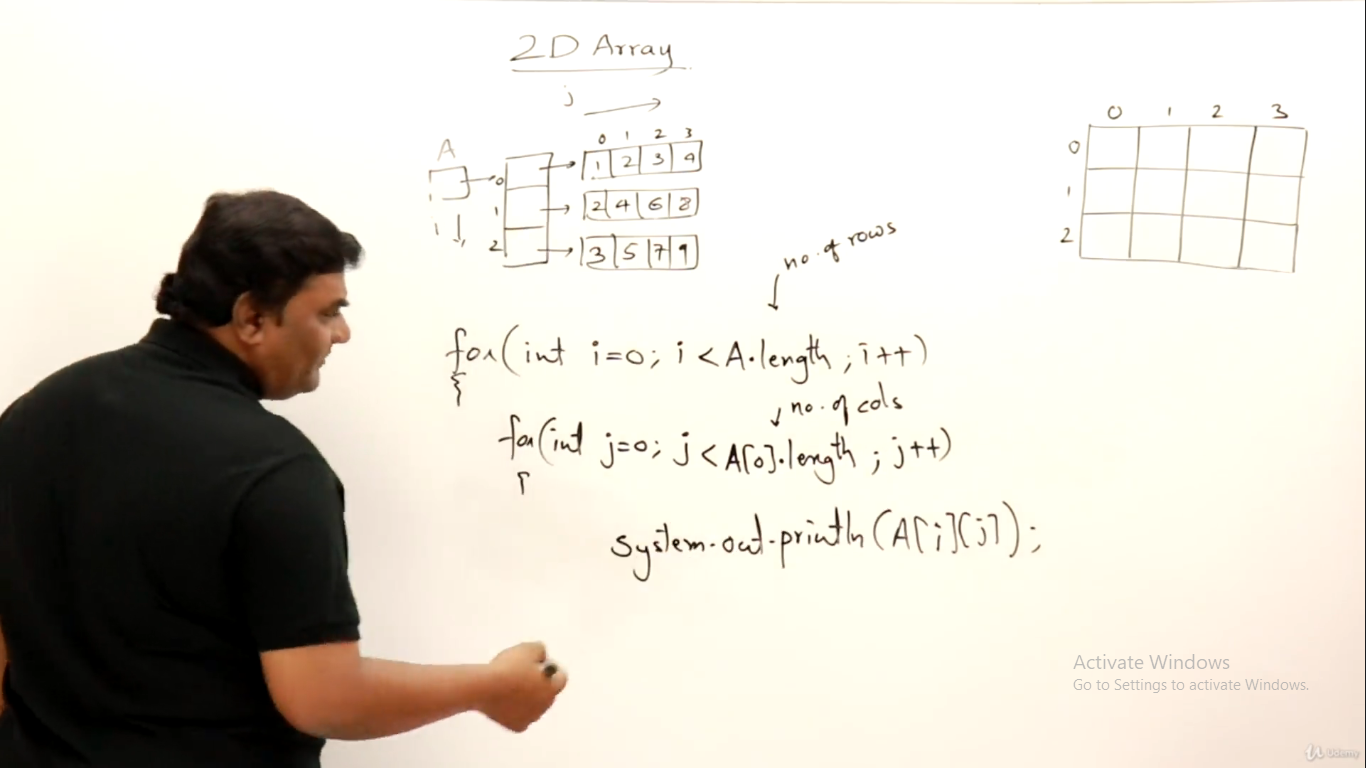 2D Array
j
A
0 1 2 3
0
1 2 3 4
i
1
2 4 6 8
2
3 5 7 9
0 1 2 3
0
1
2
no. of rows
for(int i=0; i < A.length ; i++)
{
no. of cols
for(int j=0; j < A[0].length ; j++)
{
System.out.println(A[i][j]);
Activate Windows
Go to Settings to activate Windows.
Udemy